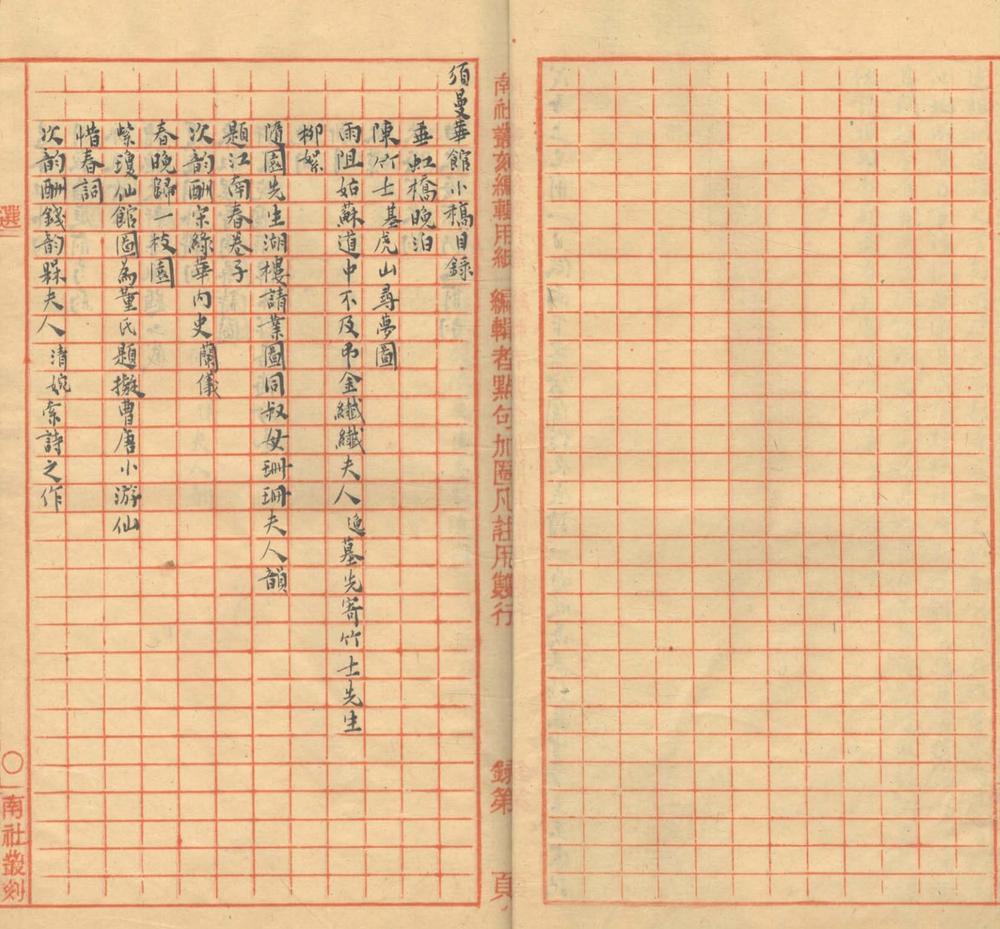 須曼華館小稿目錄
垂虹橋晚泊
陳竹士基虎山尋夢圖
雨阻姑蘇道中不及弔金纖纖夫人 墓先寄竹士先生
柳絮
隨園先生湖樓請業圖同叔母珊珊夫人韻
題江南春卷子
次韵酬宋綠華內史蘭儀
春晚歸一枝園
紫瓊仙館圖為董氏題擬曹唐小游仙
惜春詞
次韵酬錢韵槑夫人清婉索詩之作
南社叢刻編輯用紙 編輯者點句加圈凡註用雙行
錄第 頁
選
〇南社叢刻